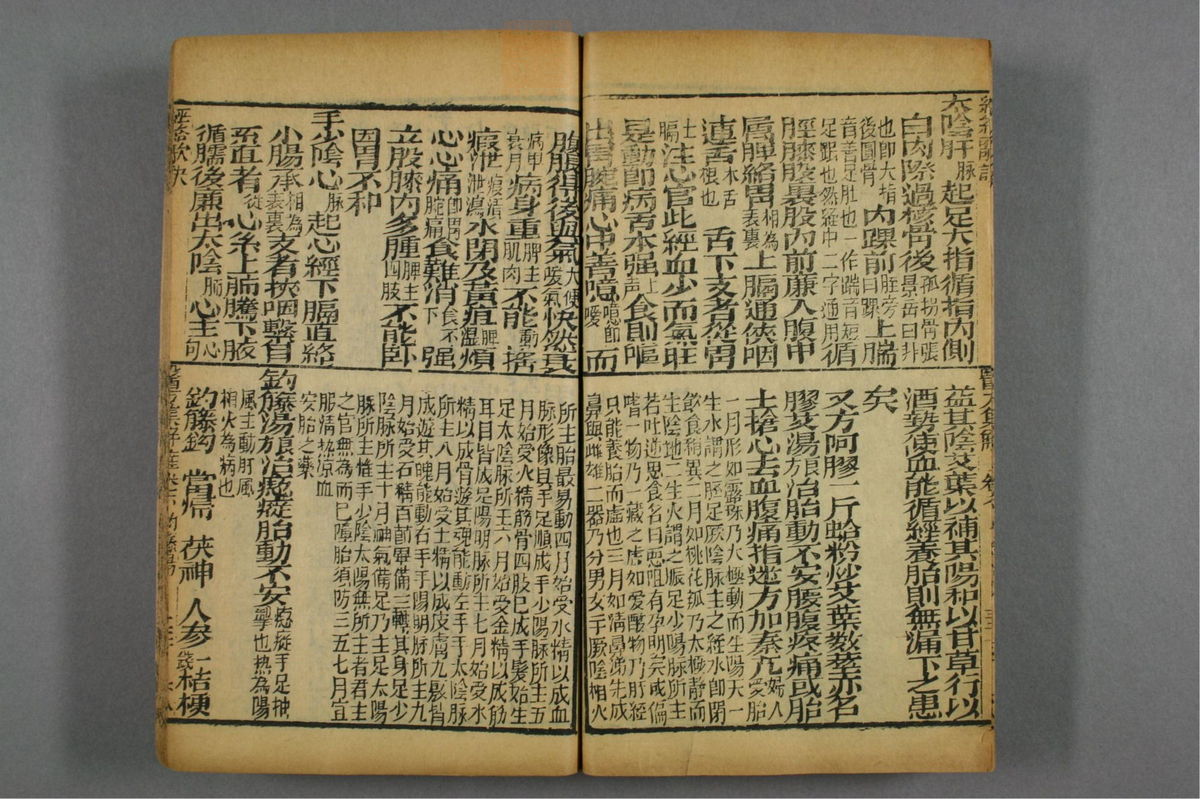 太陰肝脉起足大指循指內側
白肉際過核骨後孤拐骨張景岳曰非
也即大指後圓骨內踝前曰踝脛旁上腨
音善足肚也一作踹音短足跟也然經中二字通用循
脛膝股裏股內前廉入腹中
屬脾絡胃相為表裏上膈通俠咽
連舌本舌根也舌下支者從胃
士膈注心官此經血少而氣旺
是動即病舌本强上聲食則嘔
出胃脘痛心中善噫噫即噯而
腹脹得後與氣大便噯氣快然衰
病身重脾主肌肉不能動搖
瘕泄瘕積泄瀉水閉及黃疸脾濕煩
心心痛即胃脘痛食難消食不下强
立股膝內多腫脾主四肢不能卧
因胃不和
手少陰心脉起心經下膈直絡
小腸承相為表裏支者挾咽繫目
系直者從心系上肺騰下腋
循臑後廉出太陰肺心主心
經絡歌訣
醫方集解
益其陰艾葉以補其陽和以甘草行以
酒勢使血能循經養胎則無漏下之患
矣
又方阿膠一斤蛤粉炒艾葉數莖亦名
膠艾湯治胎動不安腰腹疼痛或胎
上搶心去血腹痛指迷方加秦艽婦人受胎
一月形如露珠乃太極動而生陽天一
生水謂之胚足厥陰脉主之經水即閉
飲食稍異二月如桃花瓣乃太極靜而
生陰地二生火謂之脤足少陽脉所主
若吐逆思食名曰惡阻有孕明矣或偏
嗜一物乃一臟之虛如愛酸物乃肝經
只能養胎而虛也三月如清鼻涕先成
鼻與雌雄二器乃分男女手厥陰相火
所主胎最易動四月始受水精以成血
脉形像具手足順成手少陽脉所主五
月始受火精筋骨四肢已成手髮始生
足太陰脉所主六月始受金精以成筋
耳目皆成足陽明脉所主七月始受水
精以成骨遊其魂能動左手手太陰脉
所主八月始受土精以成皮膚九竅皆
成遊其魄能動右手手陽明脉所主九
月始受石精百節畢備三轉其身足少
陰脉所主十月神氣備足乃生足太陽
脉所主惟手少陰太陽無所主者君主
之官無為而已障胎須防三五七月宜
服清熱凉血
安胎之藥
鈎藤湯治瘈瘲胎動不安瘈瘲手足抽掣也熱為陽
風主動肝風
相火為病也
鈎藤鈎 當歸 茯神 人參 一錢桔梗